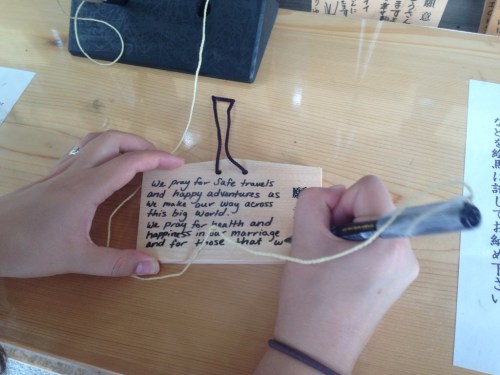 We pray for safe travels
and happy adventures as
we make our way across
this big world.
We pray for health and
happiness in our marriage
and for those that w
などを絵馬に記してお納め下さい